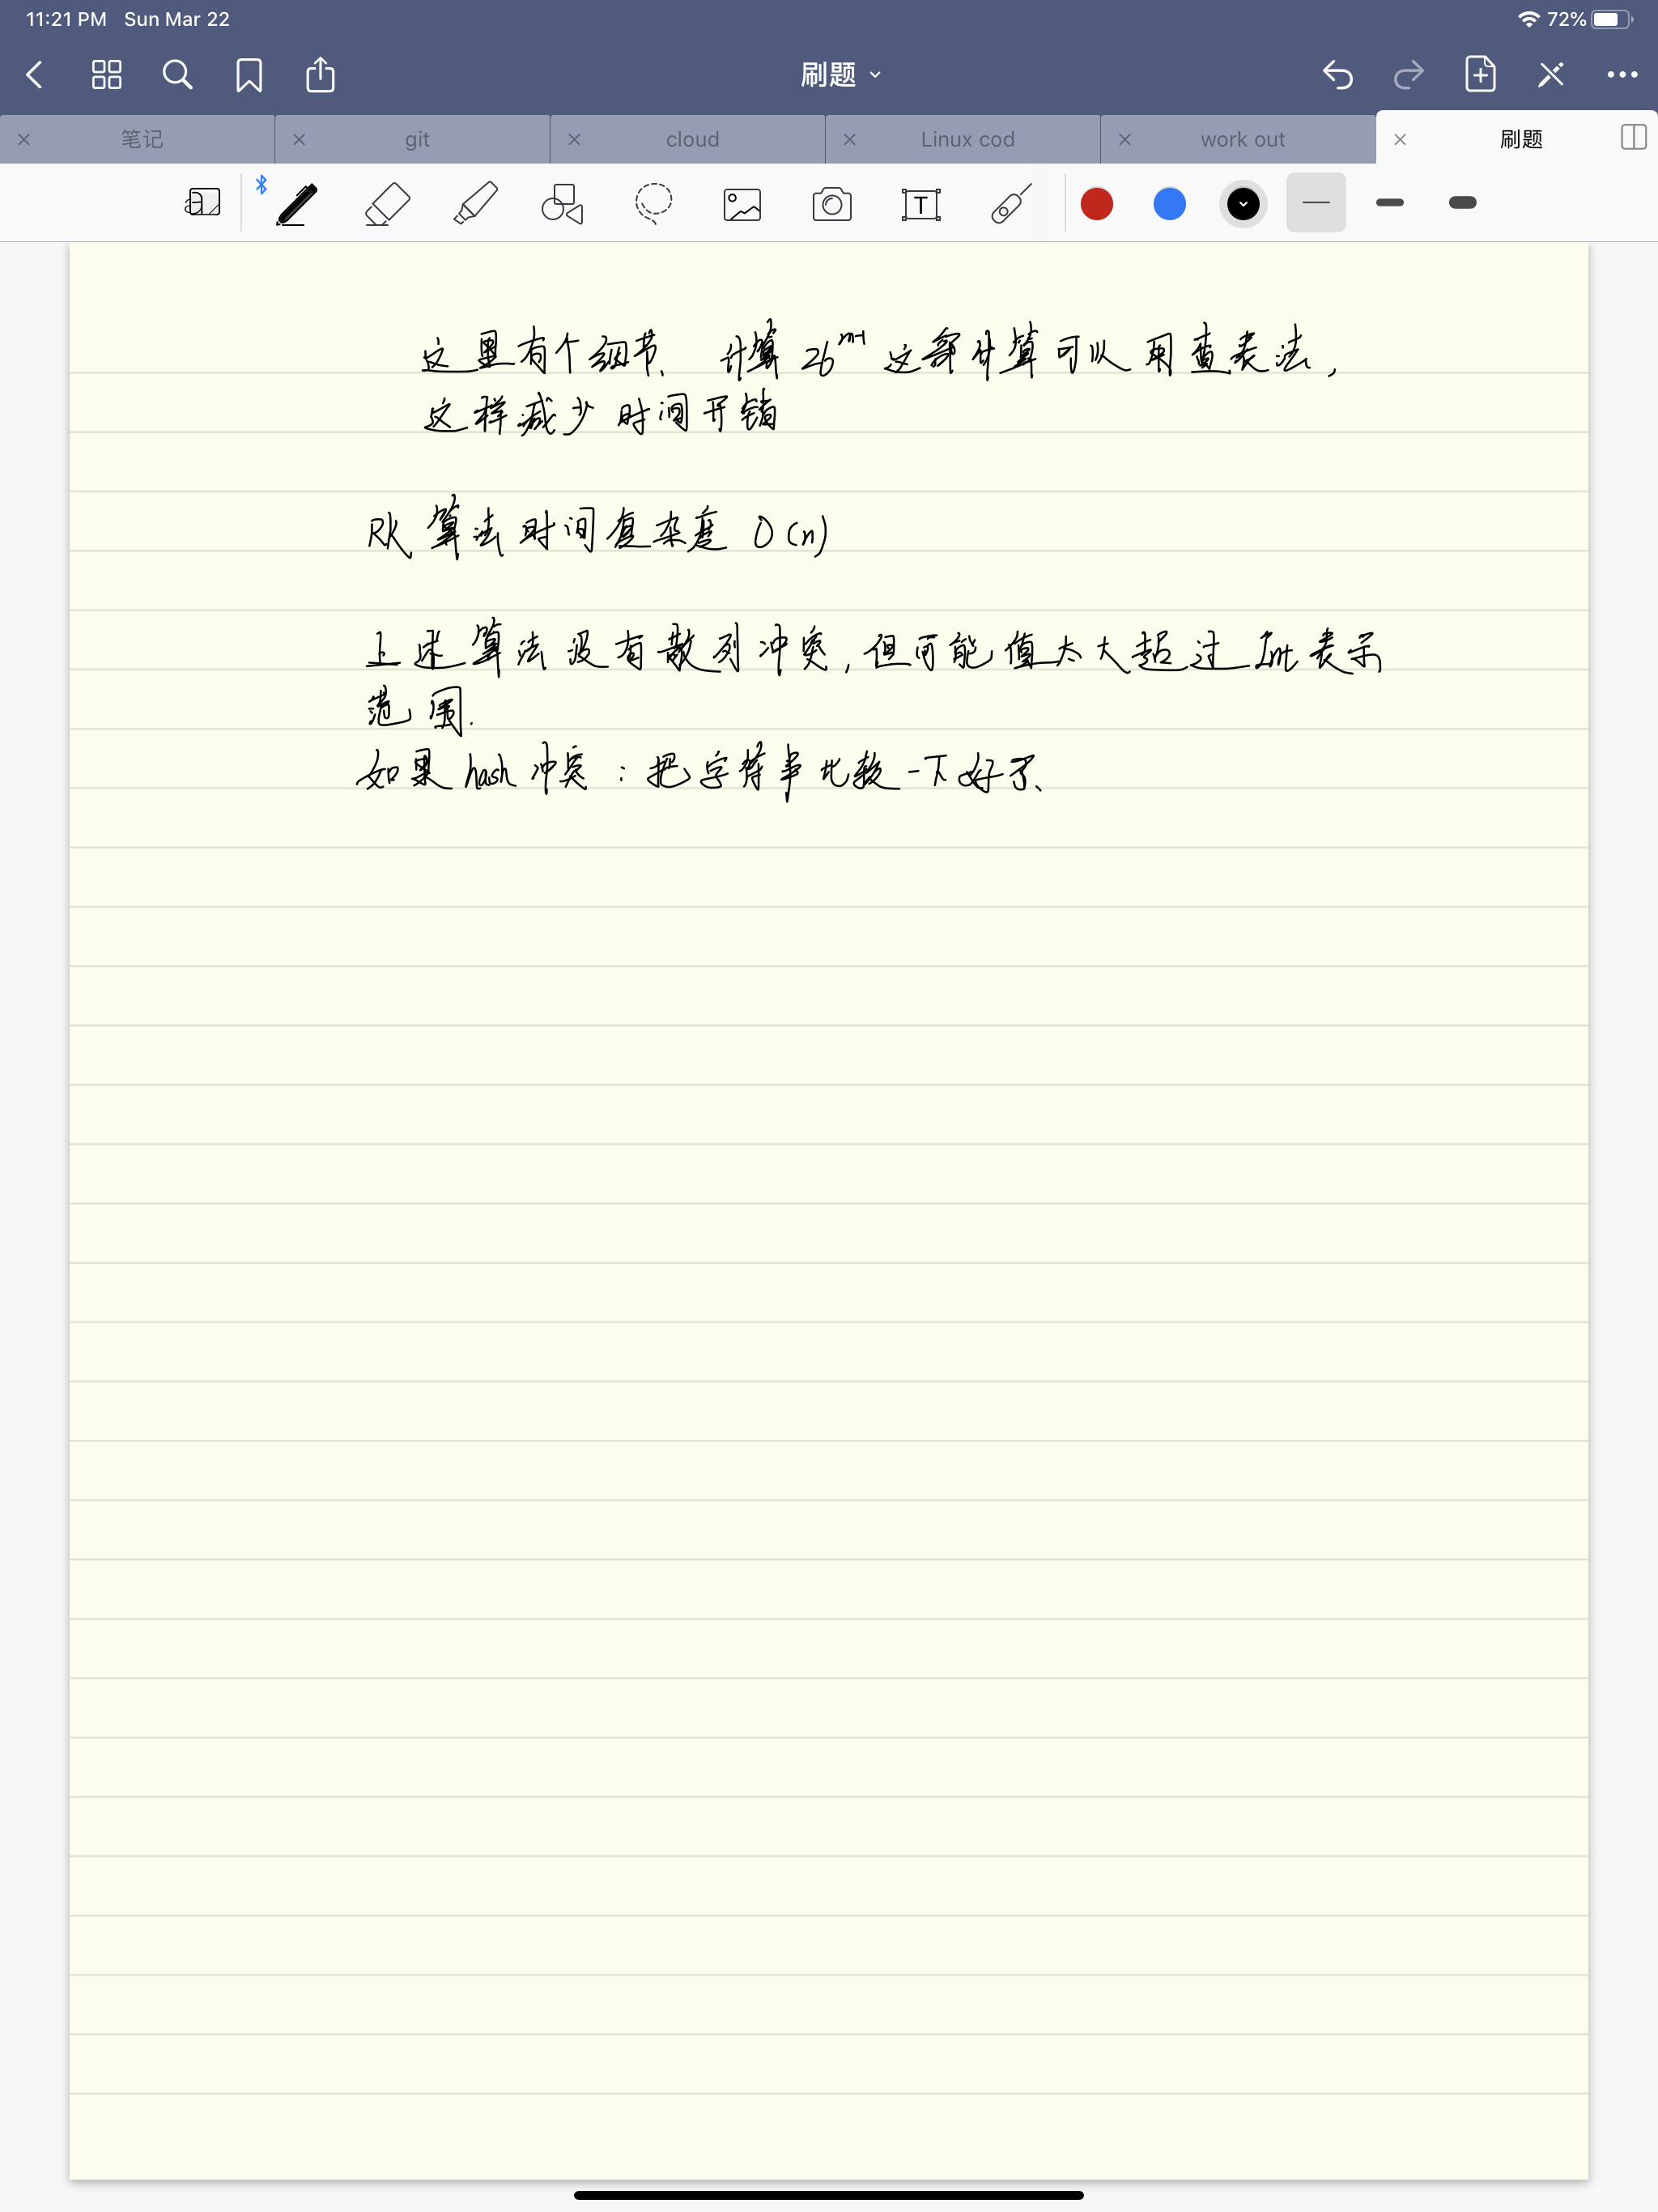 11:21 PM Sun Mar 22 72%
刷题
笔记 git cloud Linux cod work out 刷题
T
这里有个细节、计算 26^{m-1} 这部分计算可以用查表法,
这样减少时间开销
RK 算法时间复杂度 O(n)
上述算法没有散列冲突,但可能值太大超过 Int 表示
范围.
如果 hash 冲突:把字符串比较一下好了、